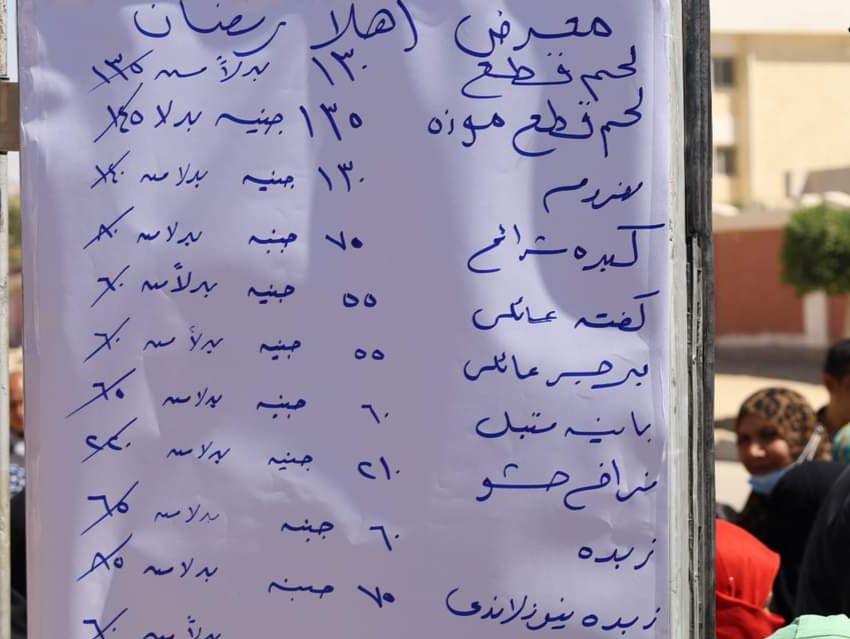 معرض أهلا رمضان
لحم قطع ١٣٠ بدلاً من ١٣٥
لحم قطع موزه ١٣٥ جنيه بدلا ١٤٥
مفروم ١٣٠ جنيه بدلا من ١٤٠
كبده شرائح ٧٠ جنبه بدلا من ٨٠
كفته عائلى ٥٥ جنيه بدلاً من ٦٠
برجر عائلى ٥٥ جنيه بدلاً من ٦٠
بانيه متبل ٦٠ جنيه بدلا من ٦٥
فراخ حشو ٢١٠ جنيه بدلا من ٢٤٠
زبده ٦٠ جنبه بدلا من ٦٥
زبده نيوزلاندى ٧٠ جنيه بدلا من ٨٥
بدلاً من ٦٠